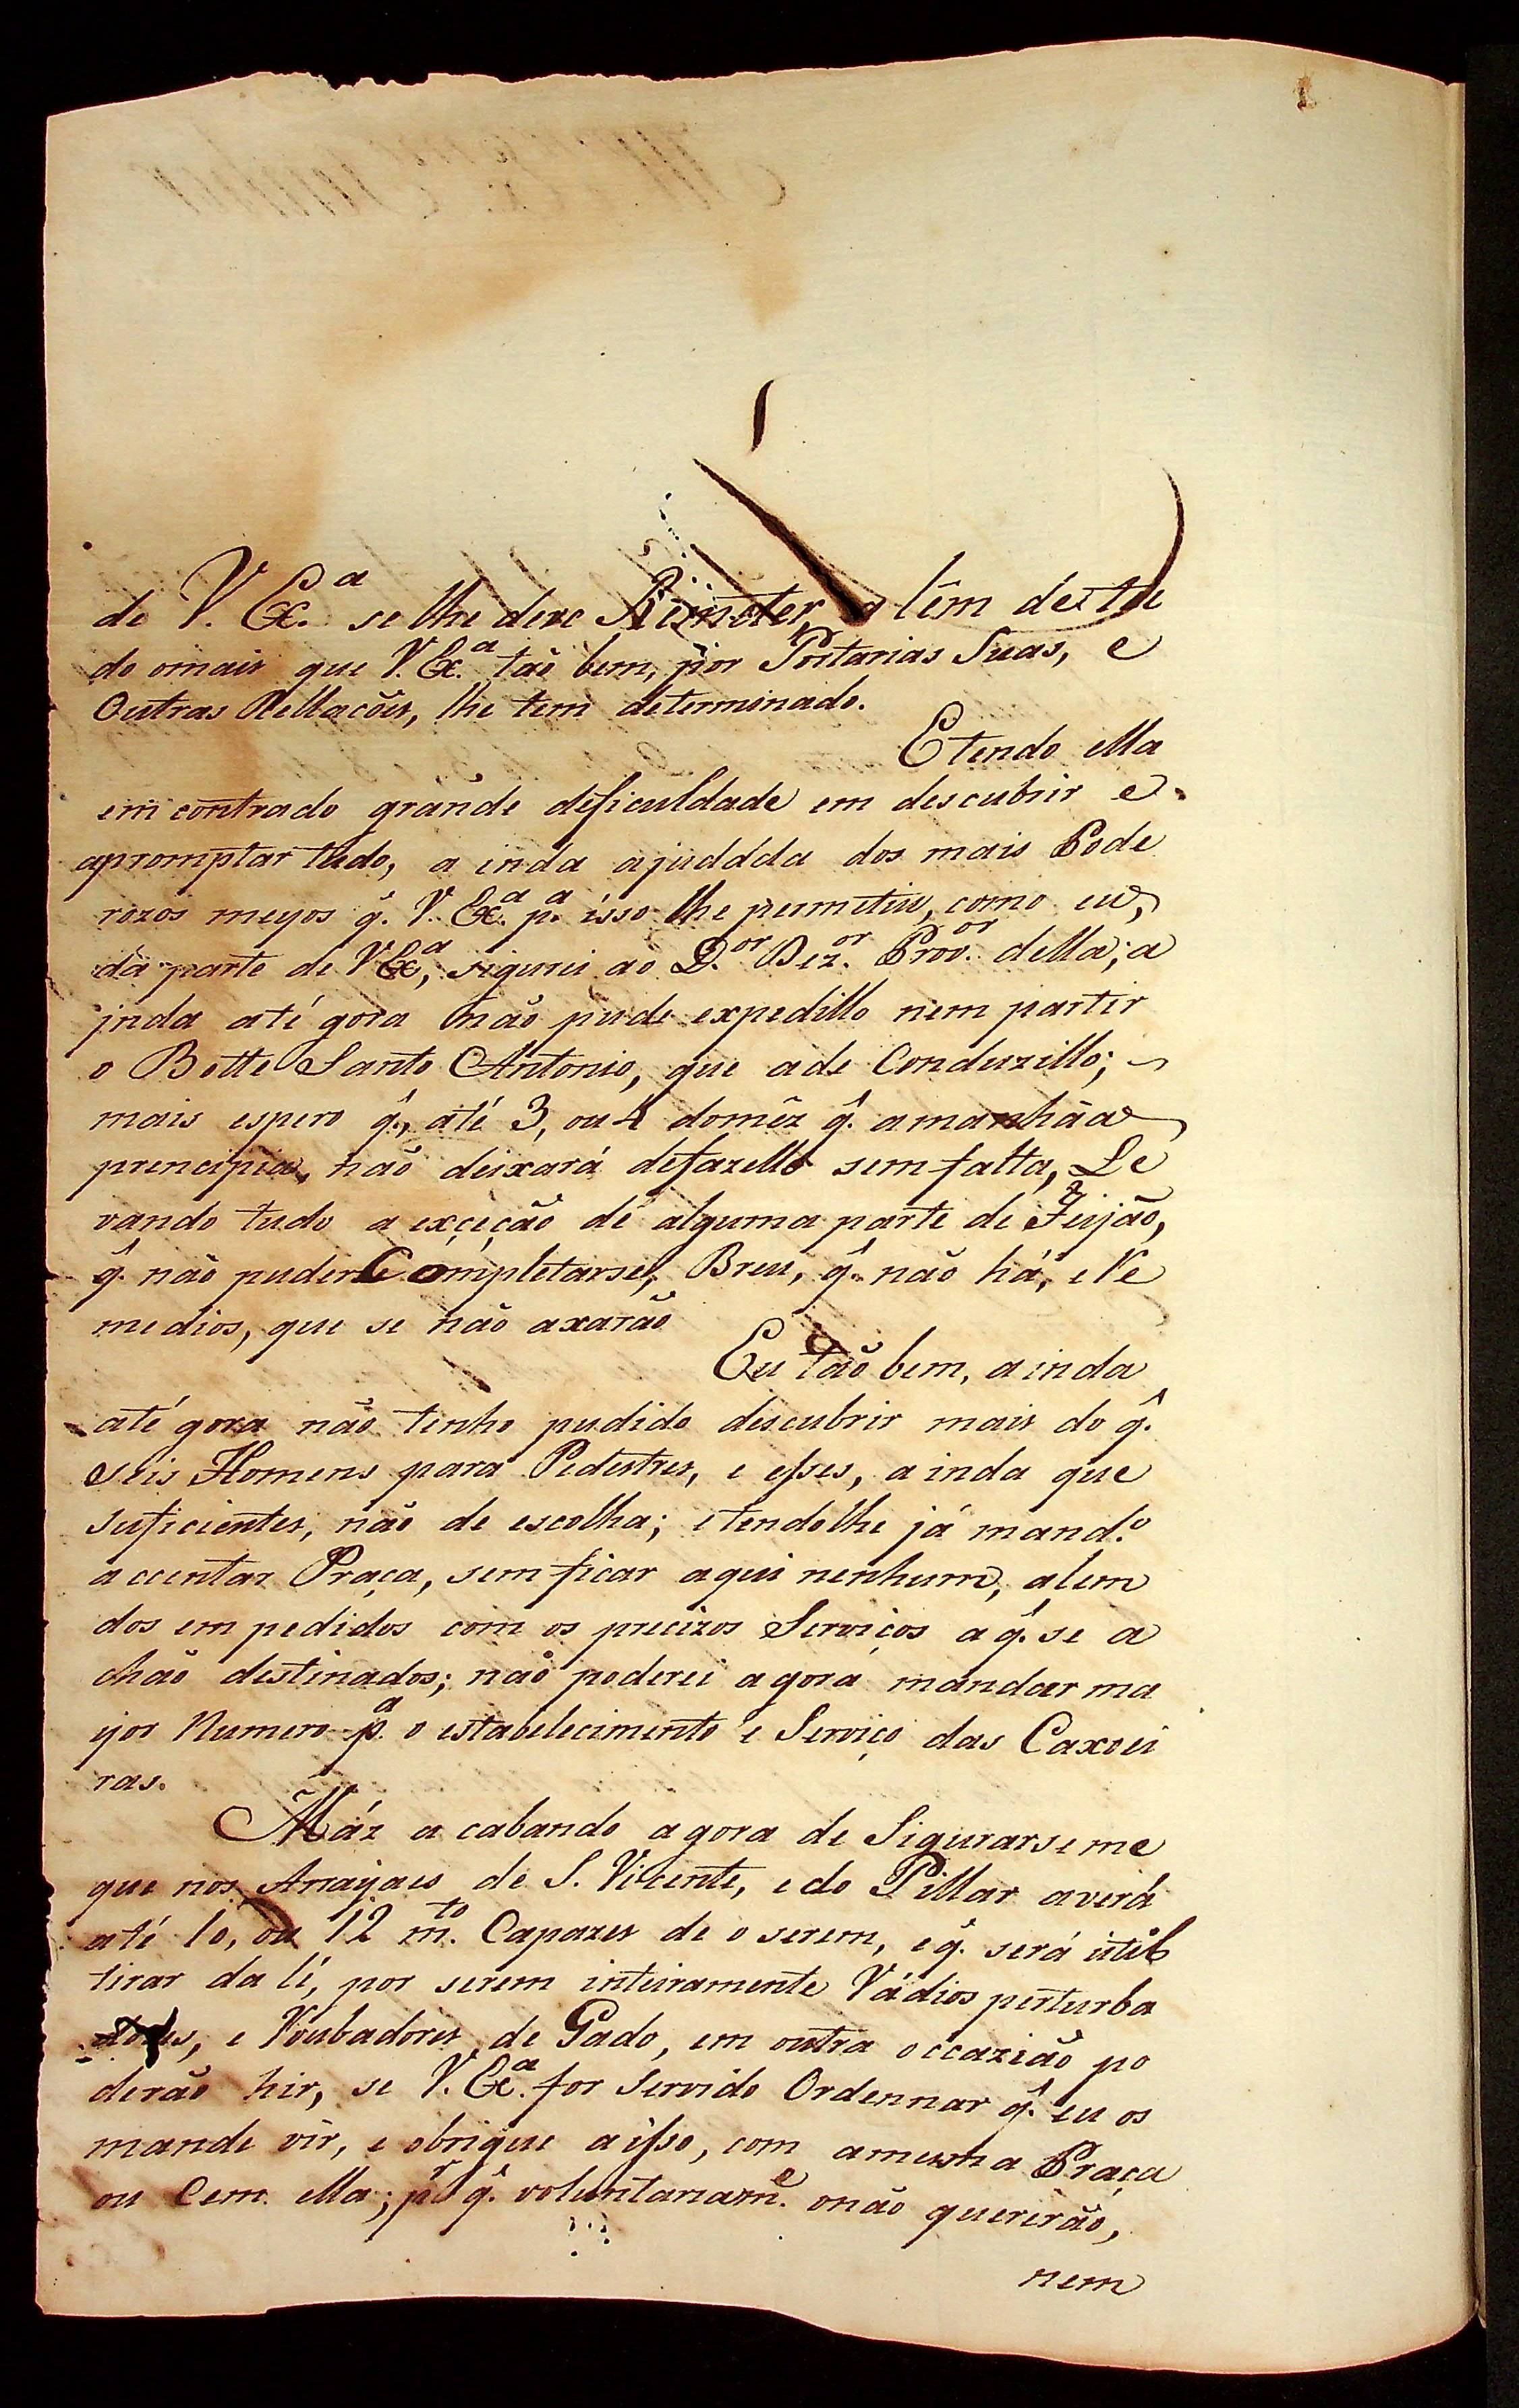 de V. Ex.ª se lhe deve Remeter, a lêm deste
do omais que V. Ex.ª tão bem, por Portarias Suas, e
Outras Rellacoẽs, lhe tem determinado.
E tendo ella
em contrado grande deficuldade em descubrir e
apromptar tudo, a inda ajuddda dos mais Pode
rozos meyos q̂. V. Ex.ª p.ª isso lhe permetiu, como eu,
da parte de V Ex.ª, sigurei ao D.or Dez.or Prov.or della; a
jnda até gora não pude expedillo nem partir
o Botte Santo Antonio, que ade Conduzillo;
mais espero q̂., até 3, ou 4 domêz q̂. amanhãa
prencipia, não deixará defazello sem falta, Le
vando tudo a exceção de alguma parte de Feijão,
q̂. não puder Completarse, Breu, q̂. não há, e Re
medios, que se não axarão
Eu tão bem, ainda
até gora não tenho pudido descubrir mais do q̂.
seis Homens para Pedestres, e esses, a inda que
suficientes, não de escolha; e tendolhe já mand.º
accentar Praça, sem ficar aqui nenhum, alem
dos em pedidos com os precizos Serviços a q̂. se a
chão destinados; não poderei agora mandar ma
yor Numero p.ª o estabelecimento e Serviço das Caxoei
ras.
Máz a cabando agora de Sigurarseme
que nos Arrayaes de S. Vicente, e do Pillar averá
até 10, ou 12 m.to Capazes de o serem, e q̂. será util
tirar da li, por serem inteiramente Vádios perturba
dores, e Roubadores de Gado, em outra occazião po
derão hir, se V. Ex.ª for Servido Ordennar q̂. eu os
mande vir, e obrigue a isso, com amesma Praça
ou Cem ella; p.r q̂. voluntariam.e onão quererão,
nem